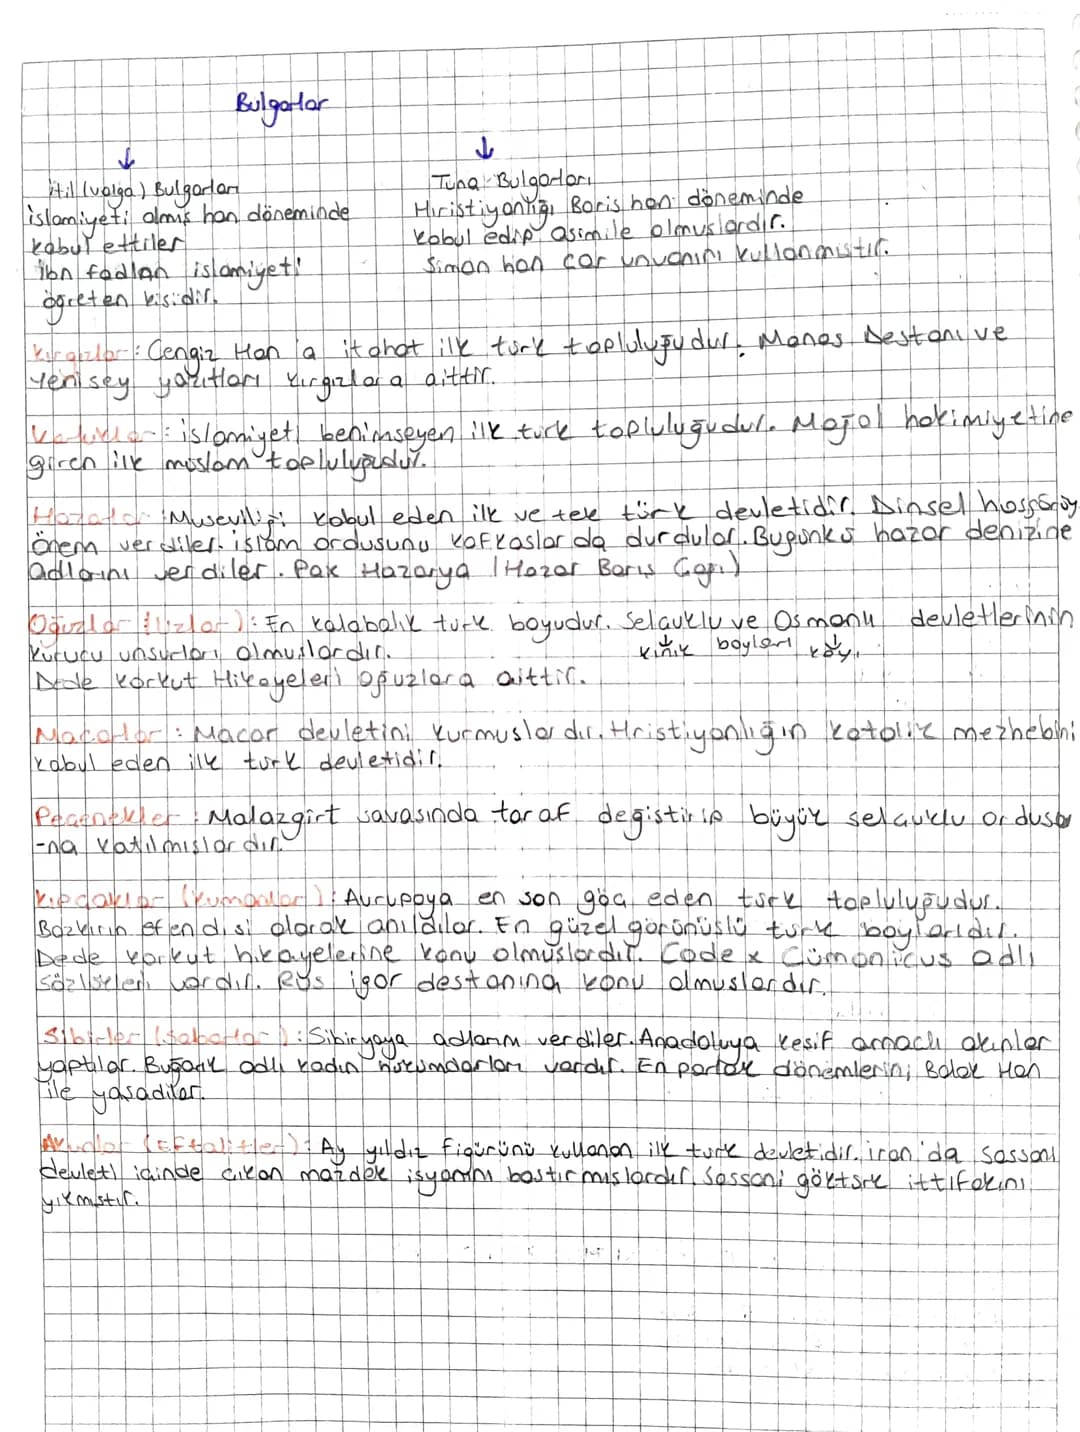 Bulgarlar
↓ ↓
itil (volga) Bulgarları
islamiyeti almış han döneminde
kabul ettiler
ibn fadlan islamiyeti
öğreten kişidir.
Tuna Bulgarları
Hıristiyanlığı Boris han döneminde
kabul edip asimile olmuslardır.
Simon han çar unvanını kullanmıstır.
Kırgızlar : Cengiz Han'a itahat ilk türk topluluğudur. Manas Destanı ve
Yenisey yazıtları kırgızlara aittir.
Karluklar : islamiyeti benimseyen ilk türk topluluğudur. Moğol hakimiyetine
giren ilk müslam topluluğudur.
Hazarlar : Museviliği kabul eden ilk ve tek türk devletidir. Dinsel hoşgörüy
önem verdiler. islam ordusunu kafkaslarda durdular. Bugünkü hazar denizine
adlarını verdiler. Pax Hazarya (Hazar Barıs Çağı)
Oğuzlar (Uzlar) : En kalabalık türk boyudur. Selçuklu ve Osmanlı devletlerinin
kurucu unsurları olmuslardır. kınık boyları kayı
Dede Korkut Hikayeleri oğuzlara aittir.
Macarlar : Macar devletini kurmuslardır. Hristiyanlığın katolik mezhebini
kabul eden ilk türk devletidir.
Peçenekler : Malazgirt savasında taraf degistirip büyük selçuklu ordusu
-na katılmıslardır.
Kıpçaklar (kumanlar) : Avrupaya en son göç eden türk topluluğudur.
Bozkırın efendisi olarak anıldılar. En güzel görünüslü türk boylarıdır.
Dede korkut hikayelerine konu olmuslardır. Codex Cümanicus adlı
sözlükleri vardır. Rus igor destanına konu olmuslardır.
Sibirler (Sabarlar) : Sibiryaya adlarını verdiler. Anadoluya kesif amaclı akınlar
yaptılar. Bugarık adlı kadın hükümdarları vardır. En parlak dönemlerini Balak Han
ile yasadılar.
Akhunlar (Eftalitler) : Ay yıldız figürünü kullanan ilk türk devletidir. iran'da Sassani
devleti icinde cıkan mazdek isyanını bastırmıslardır. Sassani göktürk ittifakını
yıkmıstır.